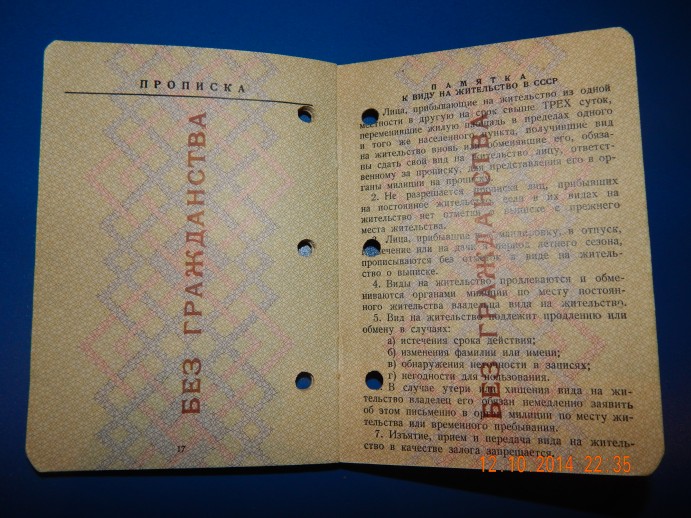 ПРОПИСКА
БЕЗ ГРАЖДАНСТВА
17
ПАМЯТКА
К ВИДУ НА ЖИТЕЛЬСТВО В СССР
Лица, прибывающие на жительство из одной
местности в другую на срок свыше ТРЕХ суток,
переменившие жилую площадь в пределах одного
и того же населенного пункта, получившие вид
на жительство вновь или обменявшие его, обяза-
ны сдать свой вид на жительство лицу, ответст-
венному за прописку, для представления его в ор-
ганы милиции на прописку.
2. Не разрешается прописка лиц, прибывших
на постоянное жительство, если в их видах на
жительство нет отметки о выписке с прежнего
места жительства.
3. Лица, прибывшие в командировку, в отпуск,
лечение или на дачу в период летнего сезона,
прописываются без отметок в виде на житель-
ство о выписке.
4. Виды на жительство продлеваются и обме-
ниваются органами милиции по месту постоян-
ного жительства владельца вида на жительство.
5. Вид на жительство подлежит продлению или
обмену в случаях:
а) истечения срока действия;
б) изменения фамилии или имени;
в) обнаружения неточности в записях;
г) негодности для пользования.
В случае утери или хищения вида на жи-
тельство владелец его обязан немедленно заявить
об этом письменно в орган милиции по месту жи-
тельства или временного пребывания.
7. Изъятие, прием и передача вида на житель-
ство в качестве залога запрещается.
БЕЗ ГРАЖДАНСТВА
12.10.2014 22:35